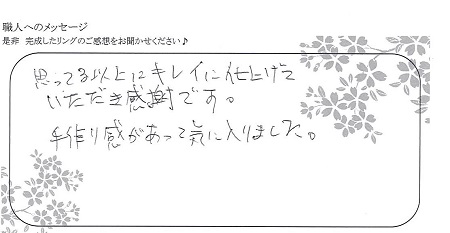 職人へのメッセージ
是非 完成したリングのご感想をお聞かせください♪
思ってる以上にキレイに仕上げて
いただき感謝です。
手作り感があって気に入りました。